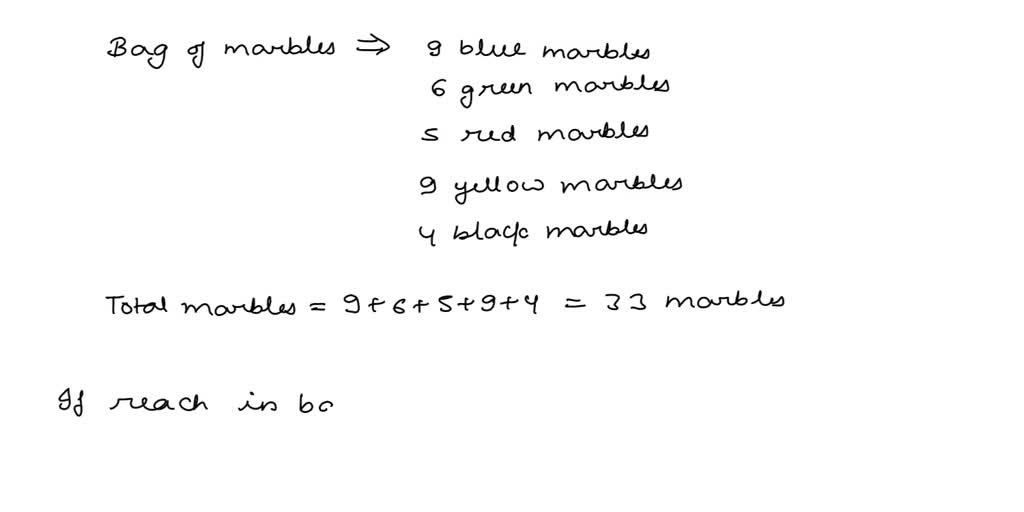 Bag of marbles ⇒ 9 blue marbles
6 green marbles
5 red marbles
9 yellow marbles
4 black marbles
Total marbles = 9+6+5+9+4 = 33 marbles
If reach in ba